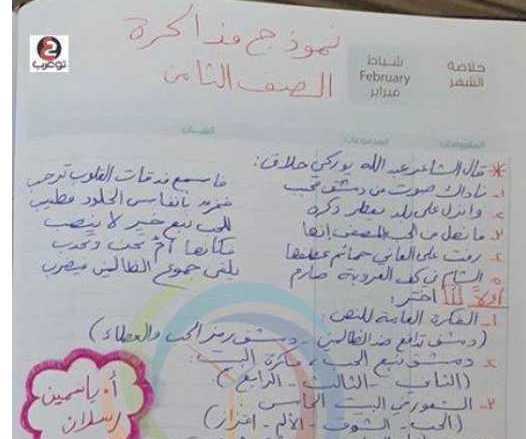 توعرب
نموذج مذاكرة
الصف الثامن
خلاصة الشهر
شباط
February
فبراير
الملاحظات
* قال الشاعر عبد الله يوركي حلاق:
١- ناداك صوت من دمشق محبب فاسمع دقات القلوب ترحب
٢- وانزل على بلد يعطر ذكره بأنفاس الخلود مطيب
٣- ما نهل من الحب المصفى إنها للحب نبع خير لا ينضب
٤- رفت على العاني حمائم عطفها فكأنها أم تحن وتحدب
٥- الشآم في كف العروبة صارم يلقى جموع الظالمين فيضرب
أولاً: اختر:
١- الفكرة العامة للنص:
(دمشق تدافع ضد الظالمين - دمشق رمز الحب والعطاء)
٢- دمشق نبع الحب، فكرة البيت:
(الثاني - الثالث - الرابع)
٣- الشعور في البيت الخامس
(الحب - الشوق - الألم - اعتزاز)
أ. ياسمين
رسلان